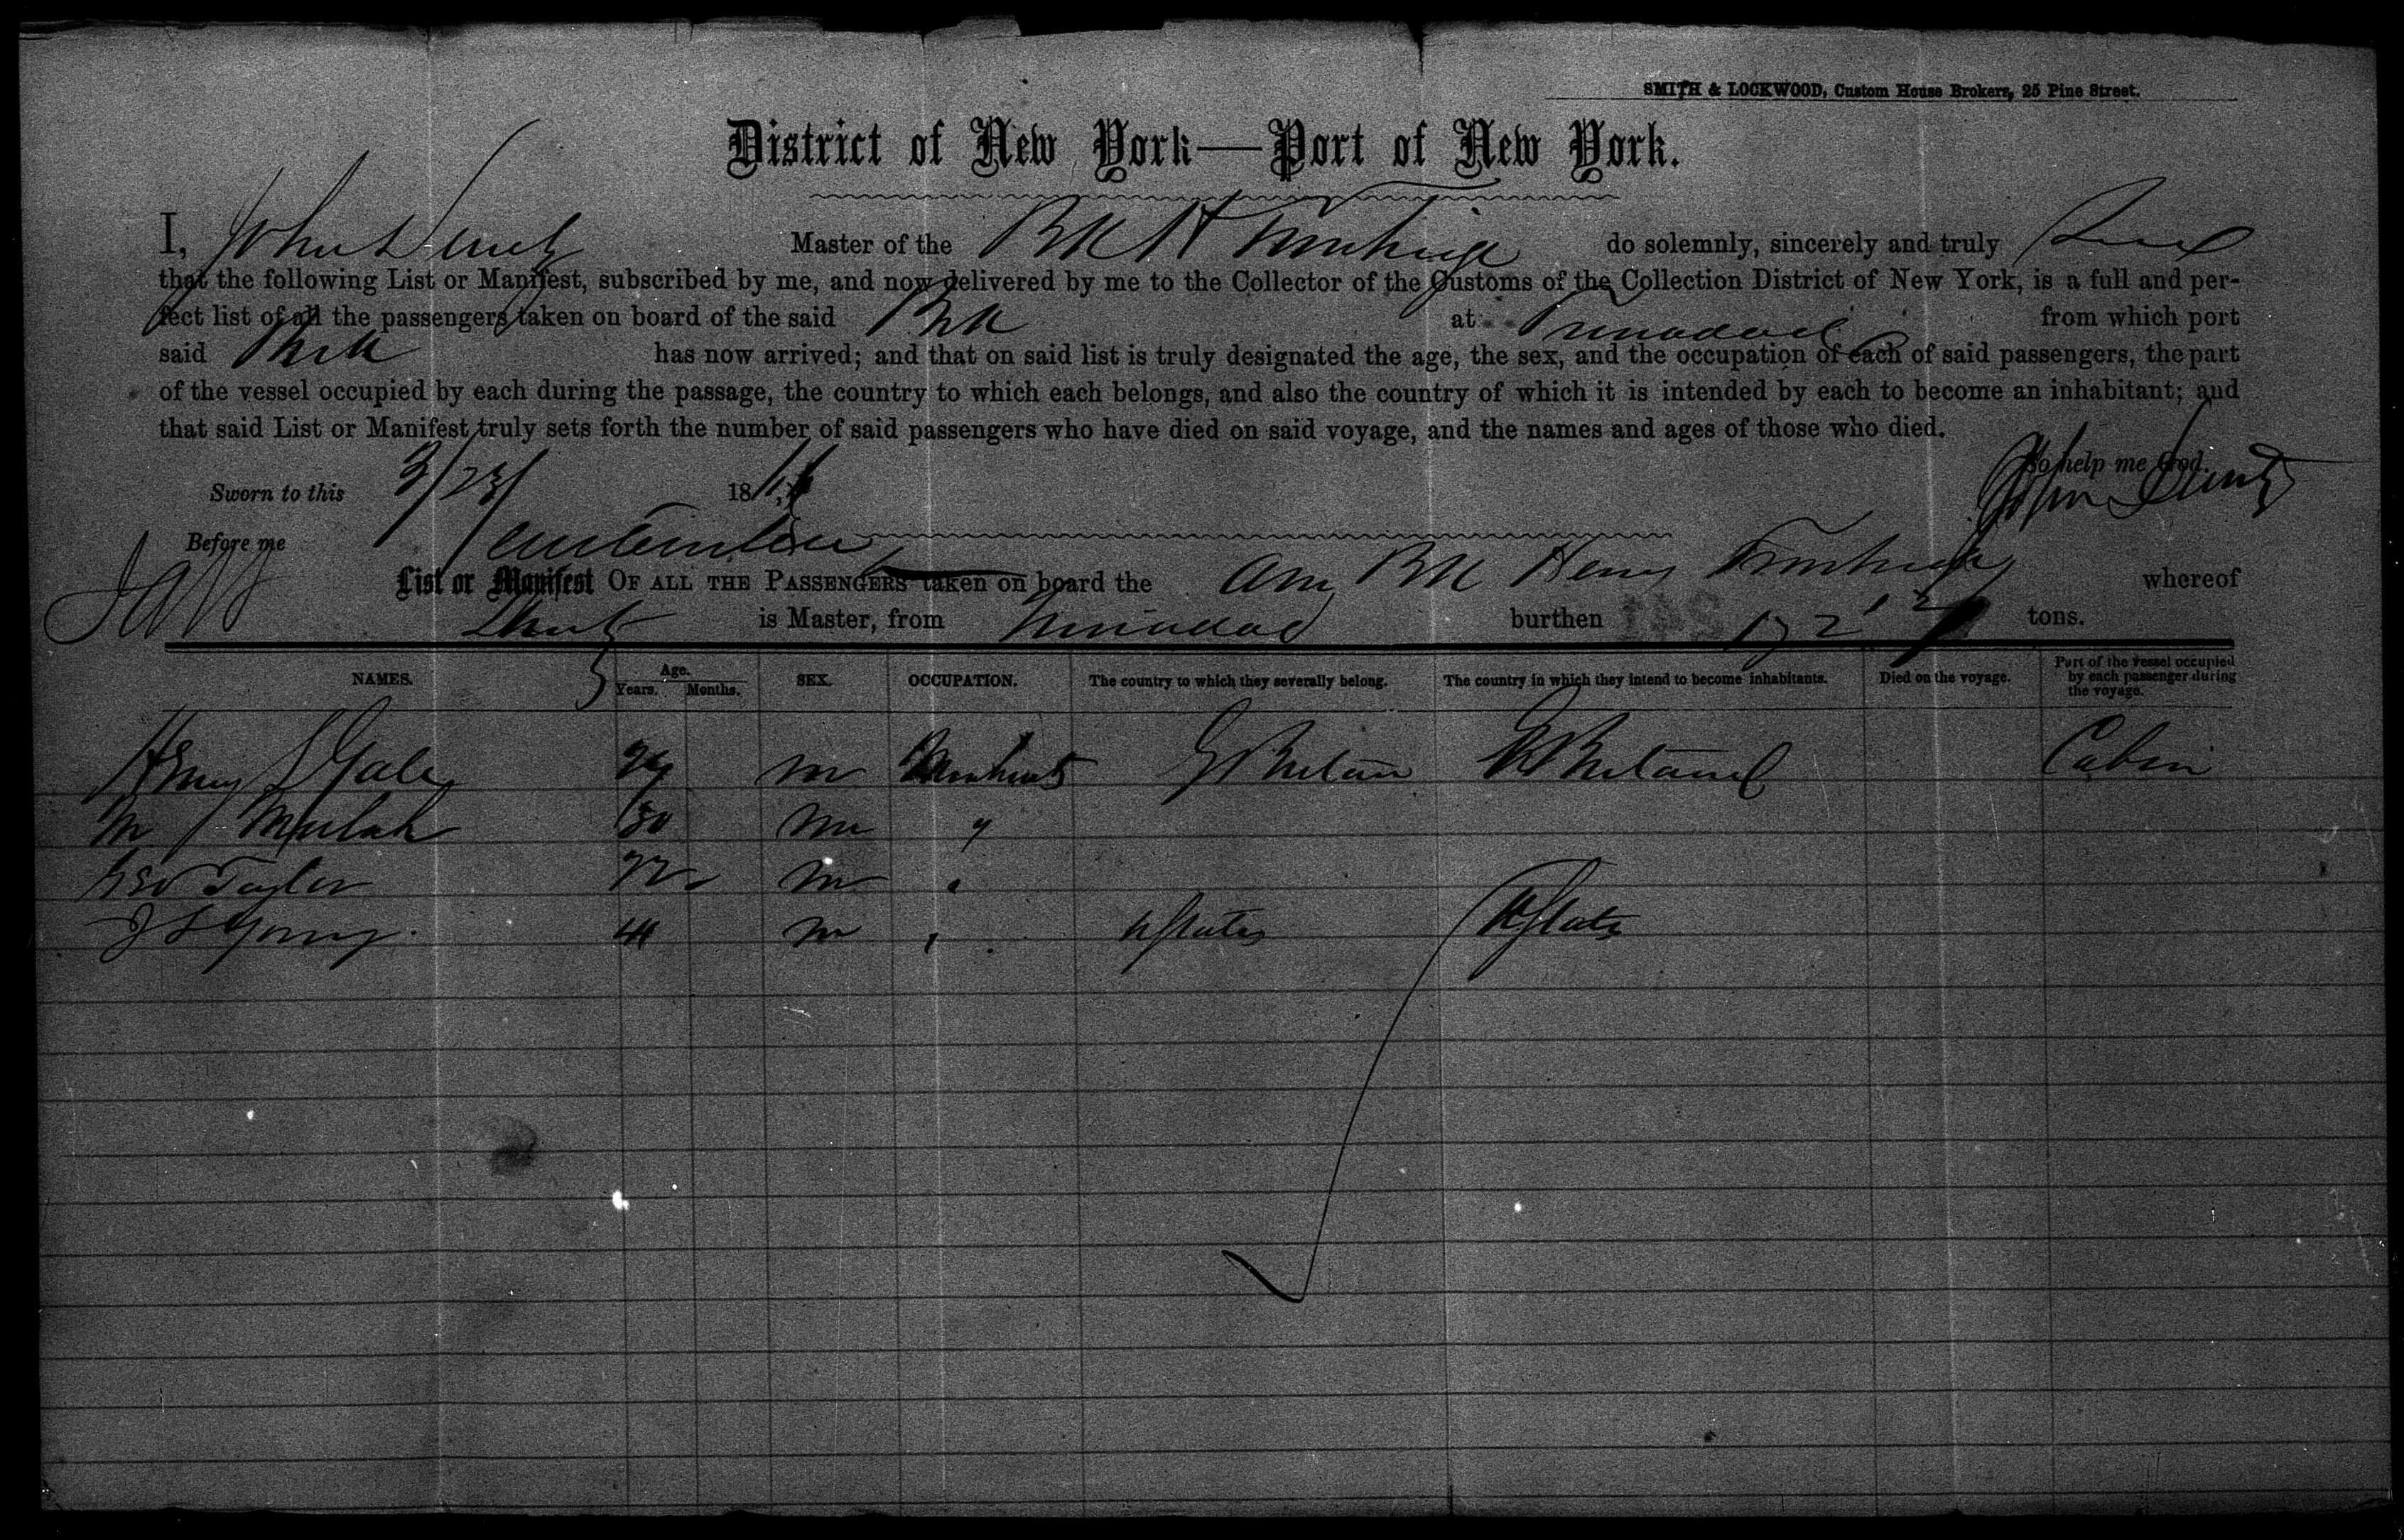 SMITH & LOCKWOOD, Custom House Brokers, 25 Pine Street.
District of New York—Port of New York.
I, John Master of the Bk H Trowbridge do solemnly, sincerely and truly
that the following List or Manifest, subscribed by me, and now delivered by me to the Collector of the Customs of the Collection District of New York, is a full and per-
fect list of all the passengers taken on board of the said Bk at Trinadad from which port
said Bk has now arrived; and that on said list is truly designated the age, the sex, and the occupation of each of said passengers, the part
of the vessel occupied by each during the passage, the country to which each belongs, and also the country of which it is intended by each to become an inhabitant; and
that said List or Manifest truly sets forth the number of said passengers who have died on said voyage, and the names and ages of those who died.
So help me God.
Sworn to this 3/23/ 18 John
Before me
List or Manifest OF ALL THE PASSENGERS taken on board the Am Bk Henry Trowbridge whereof
is Master, from Trinidad burthen tons.
NAMES. Age. Years. Months. SEX. OCCUPATION. The country to which they severally belong. The country in which they intend to become inhabitants. Died on the voyage. Part of the vessel occupied by each passenger during the voyage.
Henry S Gale m Merchants G Britain G Britain Cabin
M 30 m "
Geo Taylor m "
J S Young 41 m " U States U States